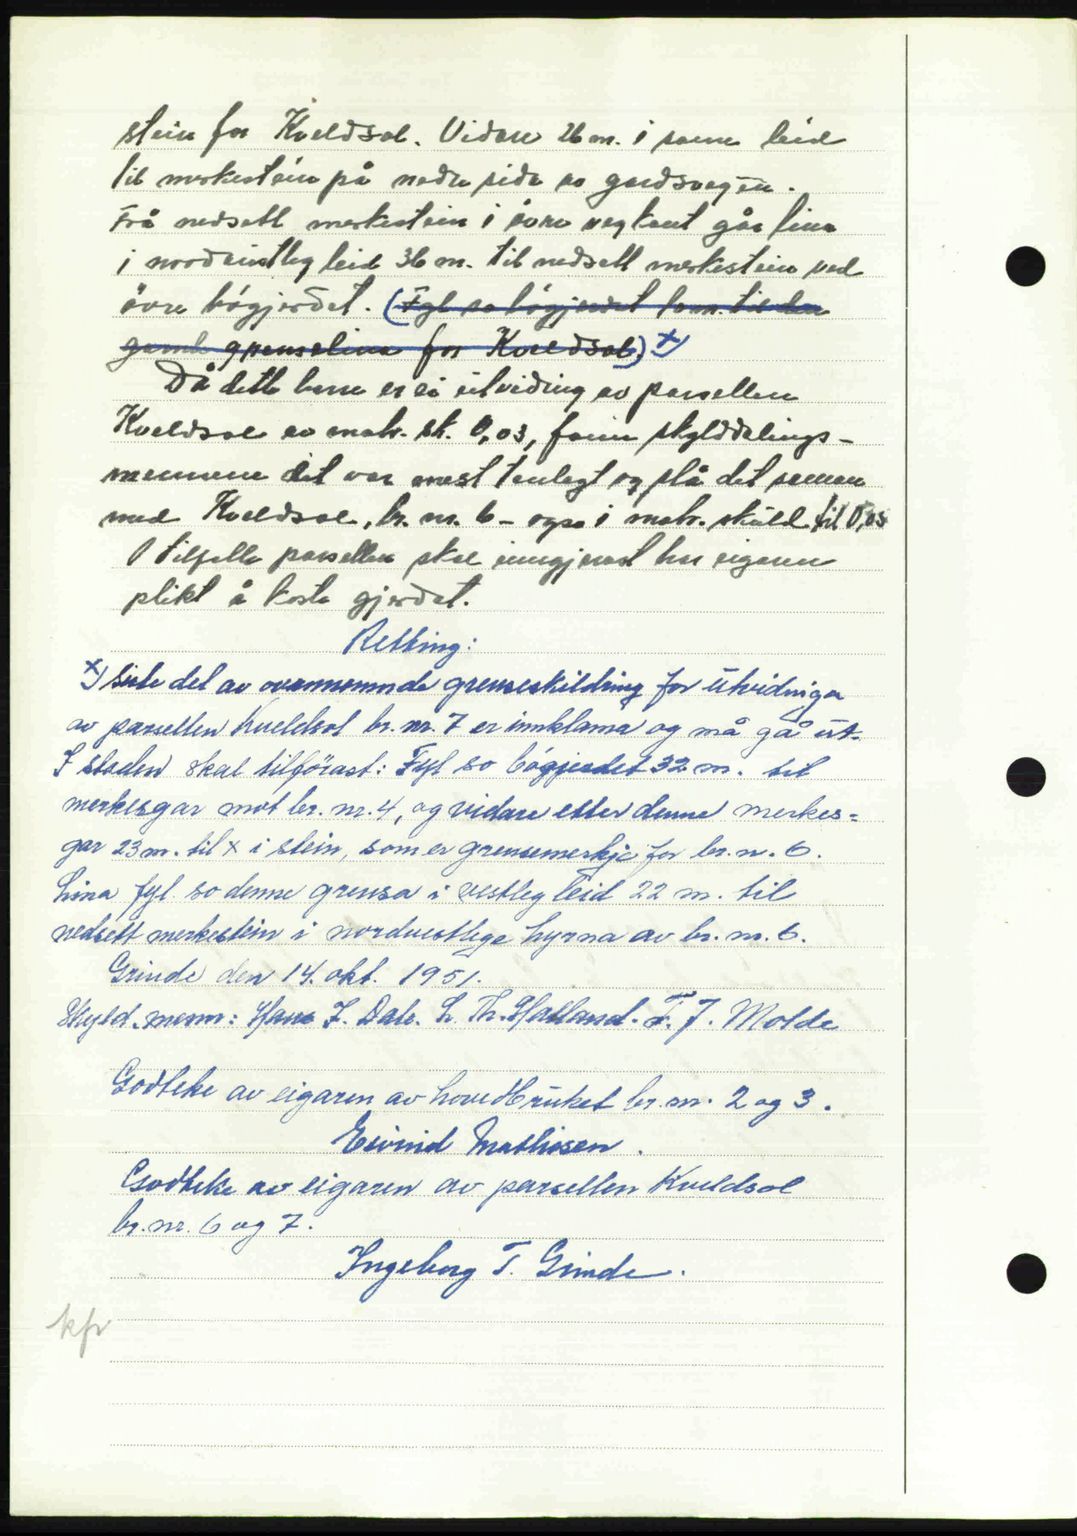 stein for Kveldsol. Vidare 26 m. i same leid
til merkestein på nedre sida av gardsvegen.
Frå nedsett merkestein i övre vegkant går lina
i nordaustleg leid 36 m. til nedsett merkestein ved
övre bögjerdet. (Fyl so bögjerdet fram til den
gamle grenselina for Kveldsol) x)
Då dette berre er ei utviding av parsellen
Kveldsol av matr. sk. 0,03, fann skylddelings-
mennene det var mest tenlegt og slå det saman
med Kveldsol, br. nr. 6 - også i matr. skuld til 0,05
I tilfelle parsellen skal inngjerast har eigaren
plikt å koste gjerdet.
Retting:
x) Siste del av ovannemnde grenseskildring for utvidinga
av parsellen Kveldsol br. nr. 7 er innklama og må gå ut.
I staden skal tilförast: Fyl so bögjerdet 32 m. til
merkesgar mot br. nr. 4, og vidare etter denne merkes=
gar 23 m. til x i stein, som er grensemerkje for br. n. 6.
Lina fyl so denne grensa i vestleg leid 22 m. til
nedsett merkestein i nordvestlege hyrna av br. nr. 6.
Grinde den 14. okt. 1951.
Skyld. menn: Hans J. Dale. L. Th. Hatland. T. J. Molde
Godteke av eigaren av hovedbruket br. nr. 2 og 3.
Eivind Mathisen.
Godteke av eigaren av parsellen Kveldsol
br. nr. 6 og 7.
Ingeborg T. Grinde.
kfr